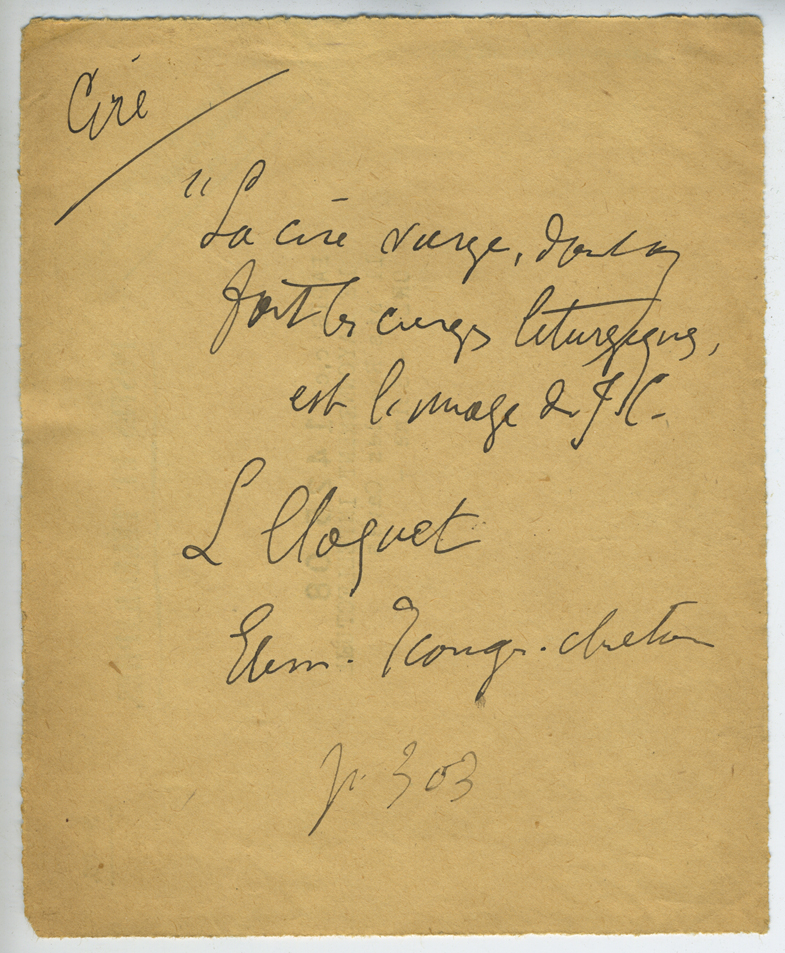 Cire
"La cire vierge, dont on
fait les cierges liturgiques,
est l'image de J C.
L Cloquet
Elem. Iconogr. chrétien
p. 303